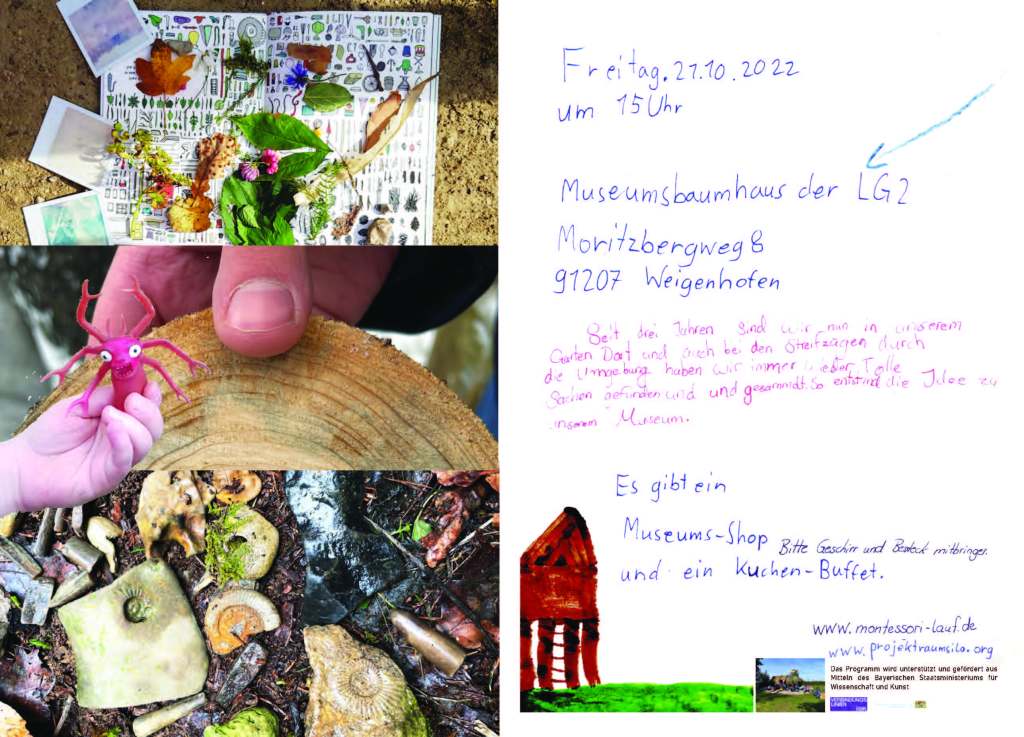 Freitag. 21.10.2022
um 15 Uhr
Museumsbaumhaus der LG2
Moritzbergweg 8
91207 Weigenhofen
Seit drei Jahren sind wir nun in unserem
Garten Dort und auch bei den Streifzügen durch
die Umgebung haben wir immer wieder Tolle
Sachen gefunden und und gesammelt. So entstand die Idee zu
unserem Museum.
Es gibt ein
Museums-Shop Bitte Geschirr und Besteck mitbringen.
und ein Kuchen-Buffet.
www.montessori-lauf.de
www.projektraumsila.org
Das Programm wird unterstützt und gefördert aus
Mitteln des Bayerischen Staatsministeriums für
Wissenschaft und Kunst
VERBINDUNGS
LINIEN